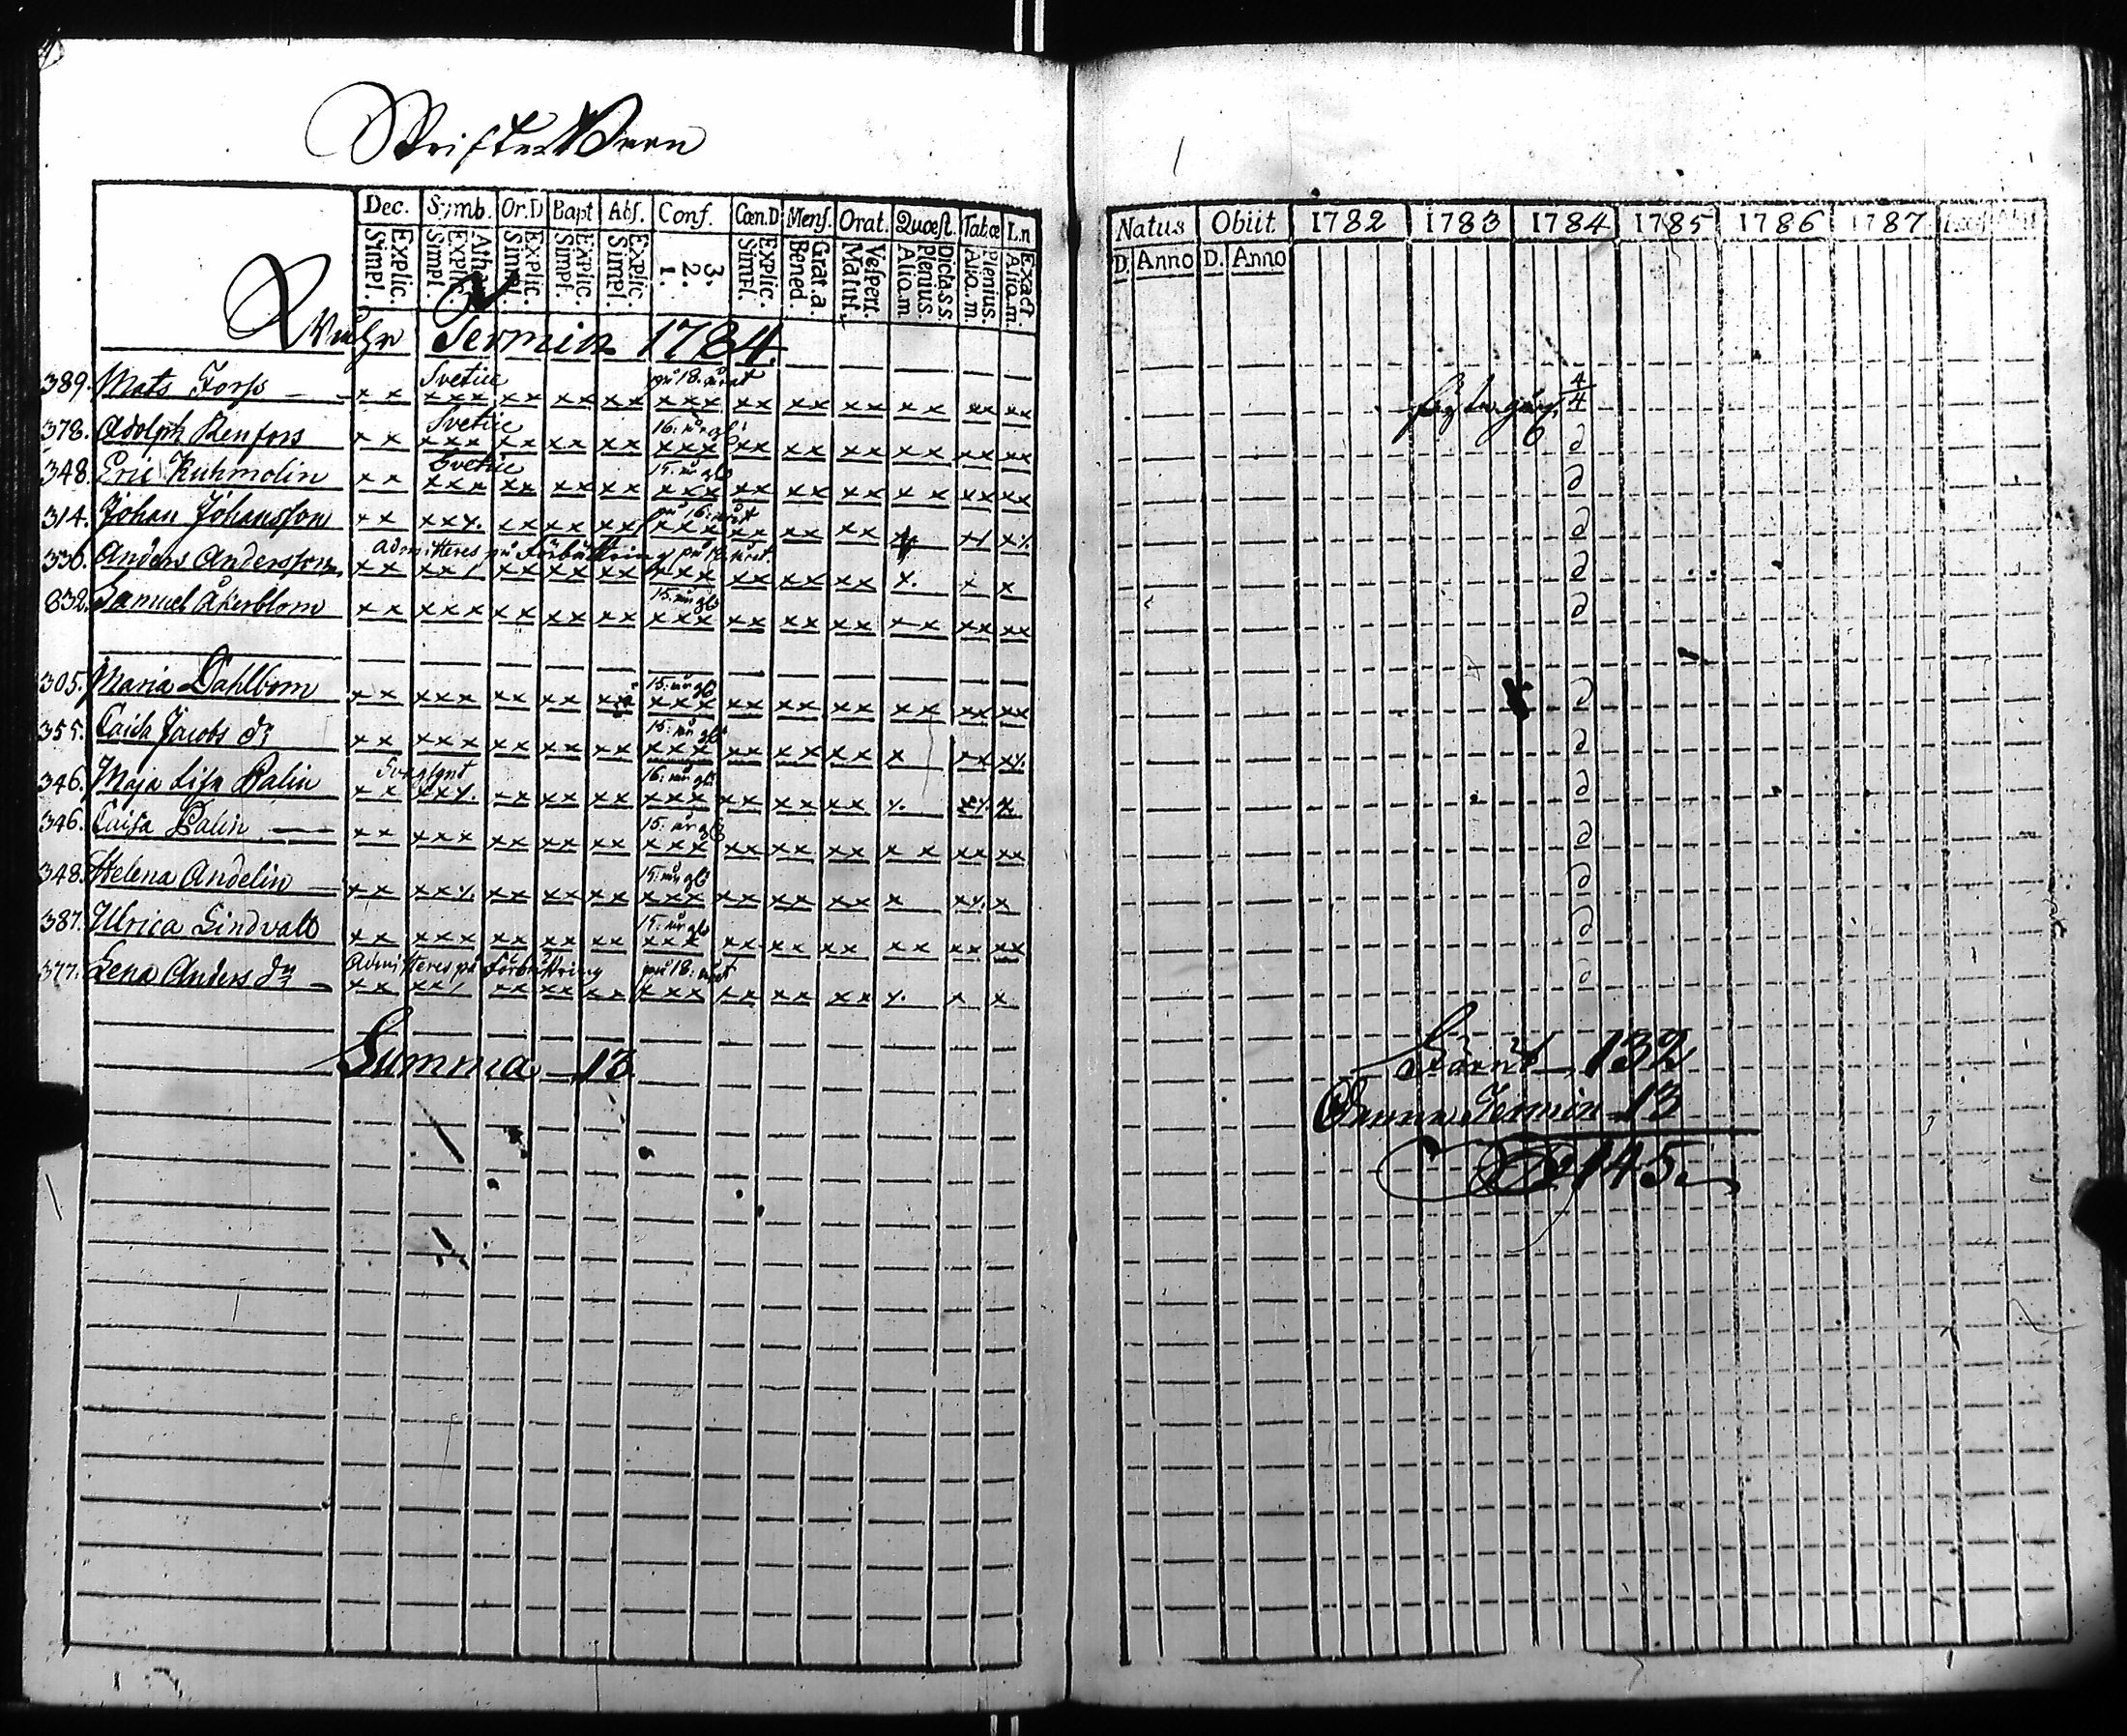 Skrifte Barn
Dec. Symb. Or.D Bapt Abs. Conf. Cœn.D Mens. Orat. Quœst. Tabœ
Explic. Simpl. Athan. Explic. Simpl. Explic. Simpl. Explic. Simpl. Explic. Simpl. 3. 2. 1. Explic. Simpl. Grat.a. Bened. Vespert. Matut. Dicta.s.s. Plenius. Alio.m. Plenius. Alio.m. Exact Alio.m.
Termin 1784.
389. Mats Forss Svetice på 18. året
378. Adolph Renfors Svetice 16. år gl:
348. Eric Kuhmolin Svetice 15. år gl:
314. Johan Johansson på 16. året
336. Anders Andersson Admitteres på förbättring på 18 året
832. Samuel Åkerblom 15. år gl:
305. Maria Dahlbom 15. år gl:
355. Caisa Jacobs dr 15. år gl:
346. Maja Lisa Palin 16. år gl:
346. Caisa Palin 15. år gl:
348. Helena Andelin 15. år gl:
387. Ulrica Lindvall 15. år gl:
377. Lena Anders dr Admitteres på förbättring på 18. året
Summa 13
Natus Obiit 1782 1783 1784 1785 1786 1787
D. Anno D. Anno
4/4
132
Denna Termin 13
S:a 145.